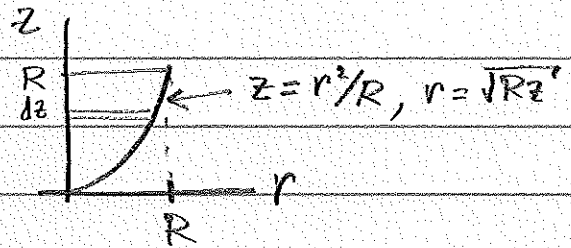 z
R
dz
z = r²/R, r = √Rz
r
R